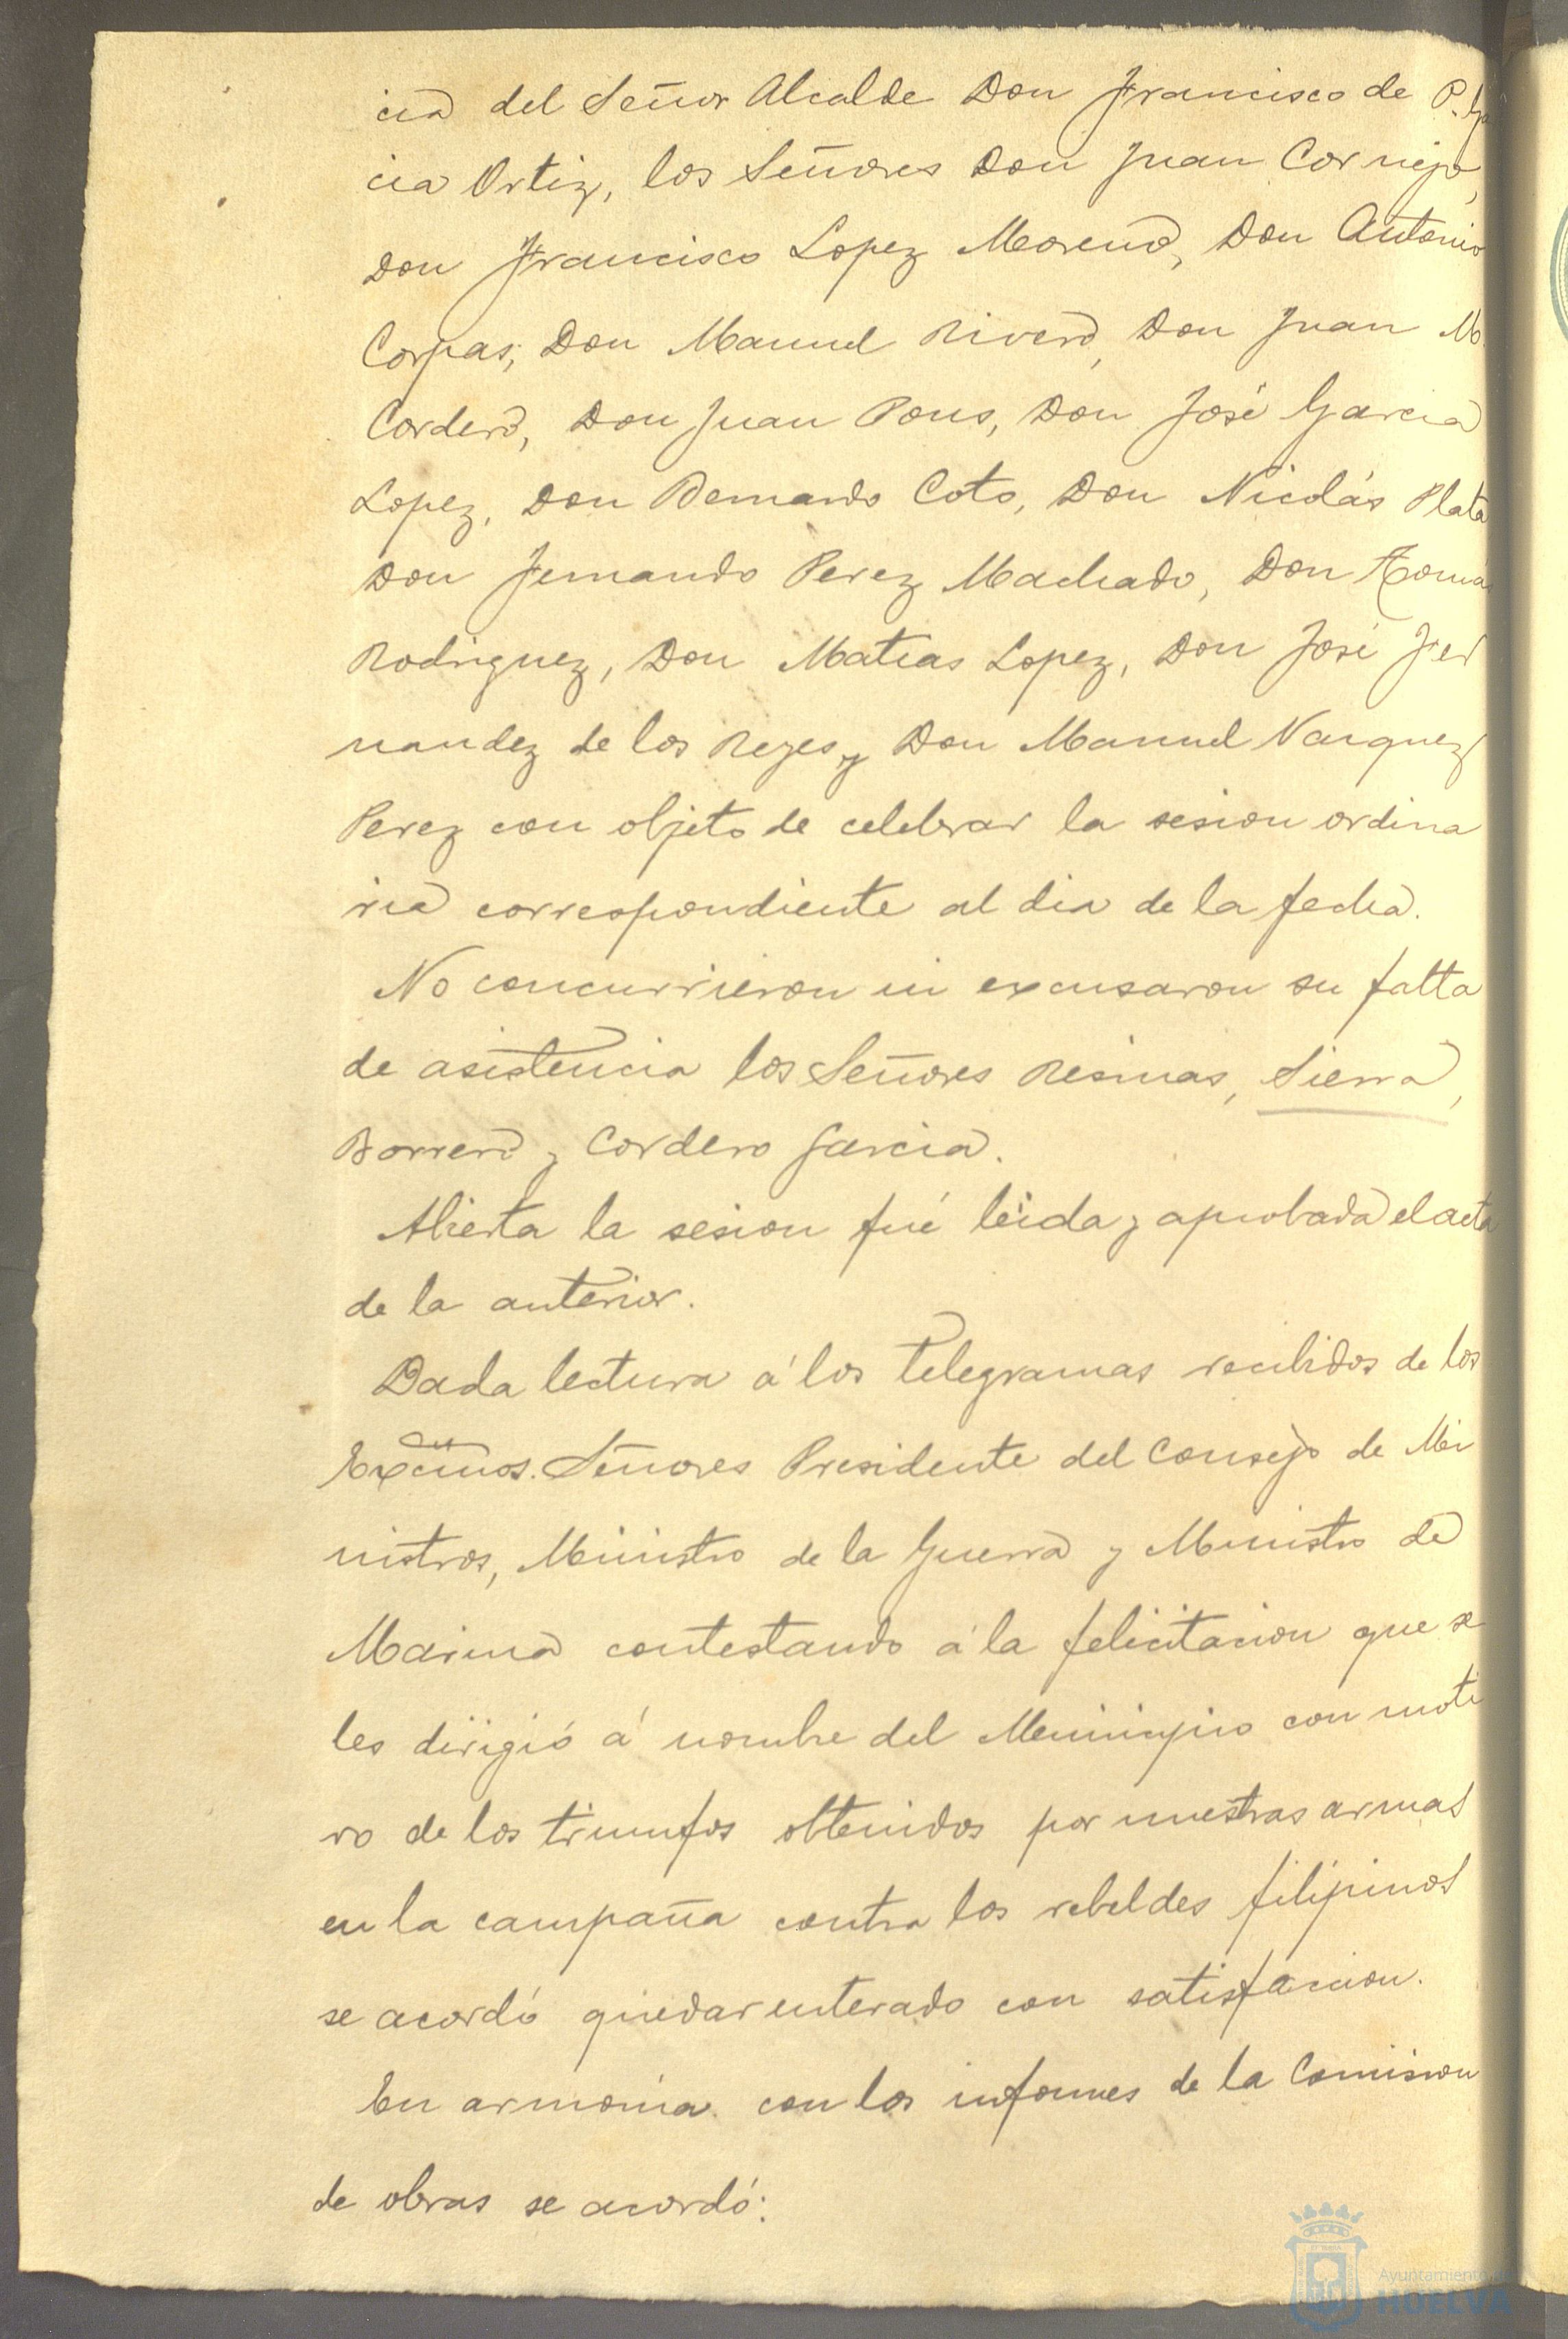 cia del Señor Alcalde Don Francisco de P. Ga
cia Ortiz, los Señores Don Juan Cornejo,
Don Francisco Lopez Moreno, Don Antonio
Corpas, Don Manuel Rivero, Don Juan M.
Cordero, Don Juan Pons, Don José Garcia
Lopez, Don Bernardo Coto, Don Nicolás Plata
Don Fernando Perez Machado, Don Tomás
Rodriguez, Don Matias Lopez, Don José Fer
nandez de los Reyes y Don Manuel Vazquez
Perez con objeto de celebrar la sesion ordina
ria correspondiente al dia de la fecha.
No concurrieron ni excusaron su falta
de asistencia los Señores Resinas, Sierra,
Borrero y Cordero Garcia.
Abierta la sesion fué leida y aprobada el acta
de la anterior.
Dada lectura á los telegramas recibidos de los
Excmos. Señores Presidente del Consejo de Mi
nistros, Ministro de la Guerra y Ministro de
Marina contestando á la felicitacion que se
les dirigió á nombre del Municipio con moti
vo de los triunfos obtenidos por nuestras armas
en la campaña contra los rebeldes filipinos
se acordó quedar enterado con satisfaccion.
En armonia con los informes de la Comision
de obras se acordó:
Ayuntamiento de
HUELVA